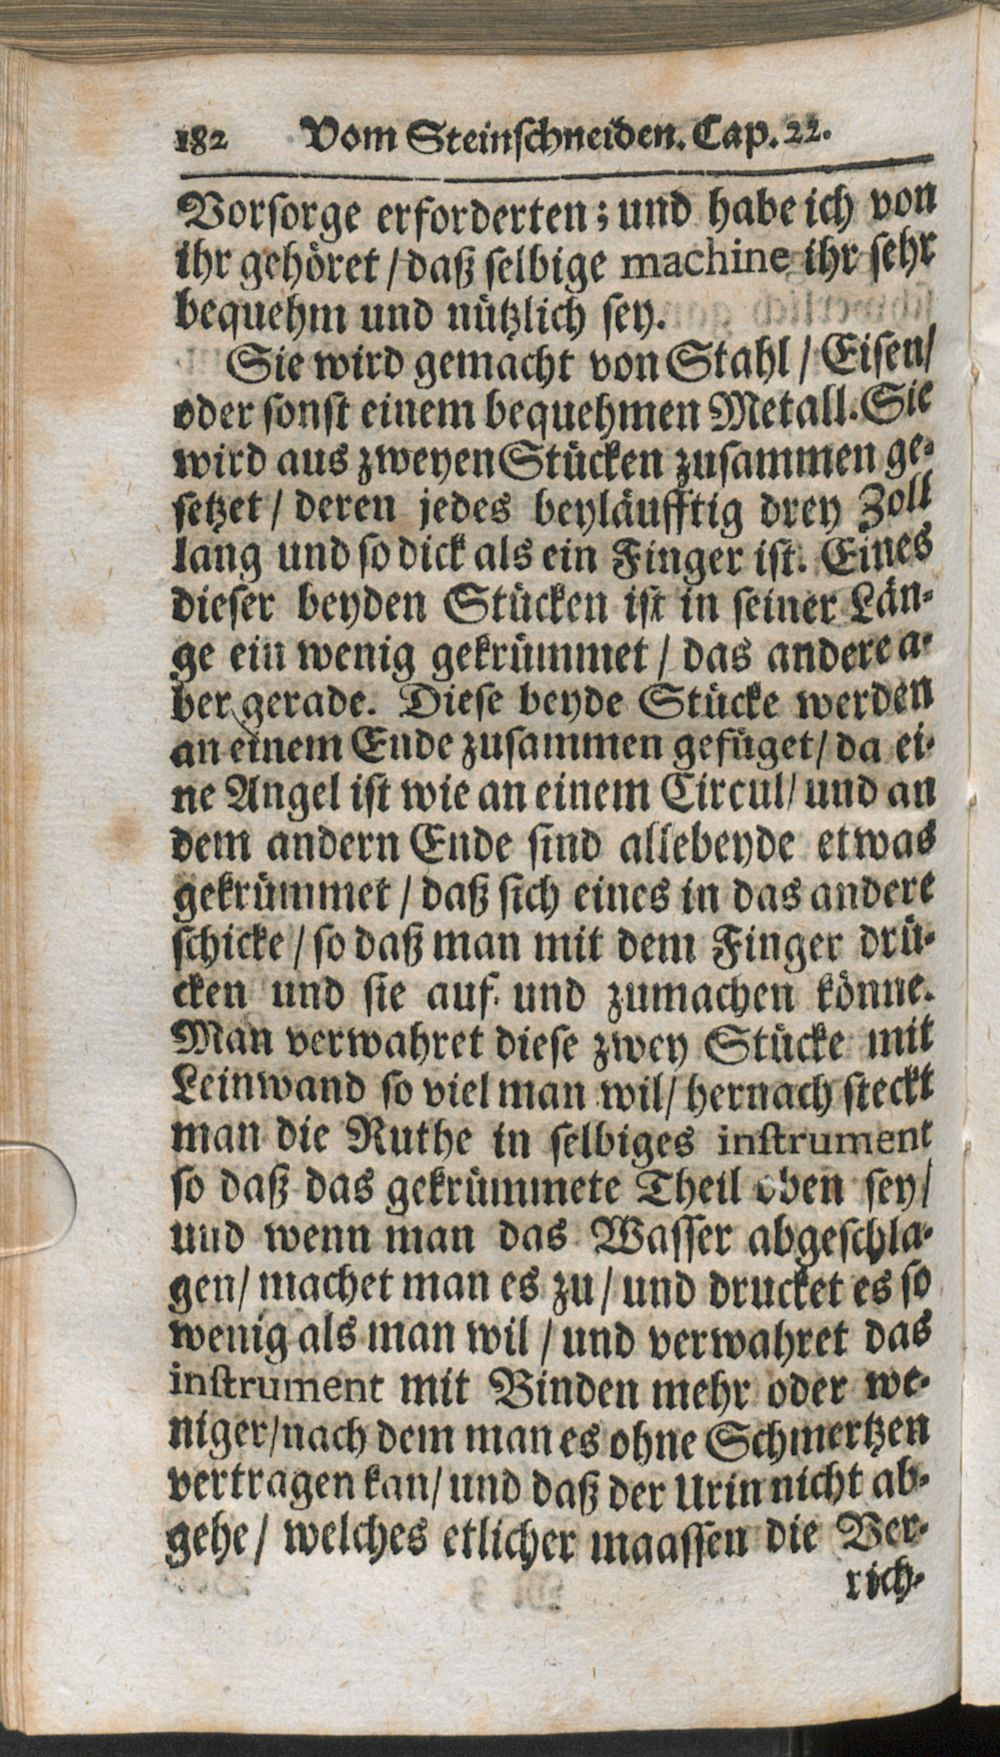 182 Vom Steinschneiden. Cap. 22.
Vorsorge erforderten; und habe ich von
ihr gehöret / daß selbige machine ihr sehr
bequehm und nützlich sey.
Sie wird gemacht von Stahl / Eisen /
oder sonst einem bequehmen Metall. Sie
wird aus zweyen Stücken zusammen ge-
setzet / deren jedes beyläufftig drey Zoll
lang und so dick als ein Finger ist. Eines
dieser beyden Stücken ist in seiner Län-
ge ein wenig gekrümmet / das andere a-
ber gerade. Diese beyde Stücke werden
an einem Ende zusammen gefüget / da ei-
ne Angel ist wie an einem Circul / und an
dem andern Ende sind allebeyde etwas
gekrümmet / daß sich eines in das andere
schicke / so daß man mit dem Finger drü-
cken und sie auf- und zumachen könne.
Man verwahret diese zwey Stücke mit
Leinwand so viel man wil / hernach steckt
man die Ruthe in selbiges instrument
so daß das gekrümmete Theil oben sey /
und wenn man das Wasser abgeschla-
gen / machet man es zu / und drucket es so
wenig als man wil / und verwahret das
instrument mit Binden mehr oder we-
niger / nach dem man es ohne Schmertzen
vertragen kan / und daß der Urin nicht ab-
gehe / welches etlicher maassen die Ver-
rich-